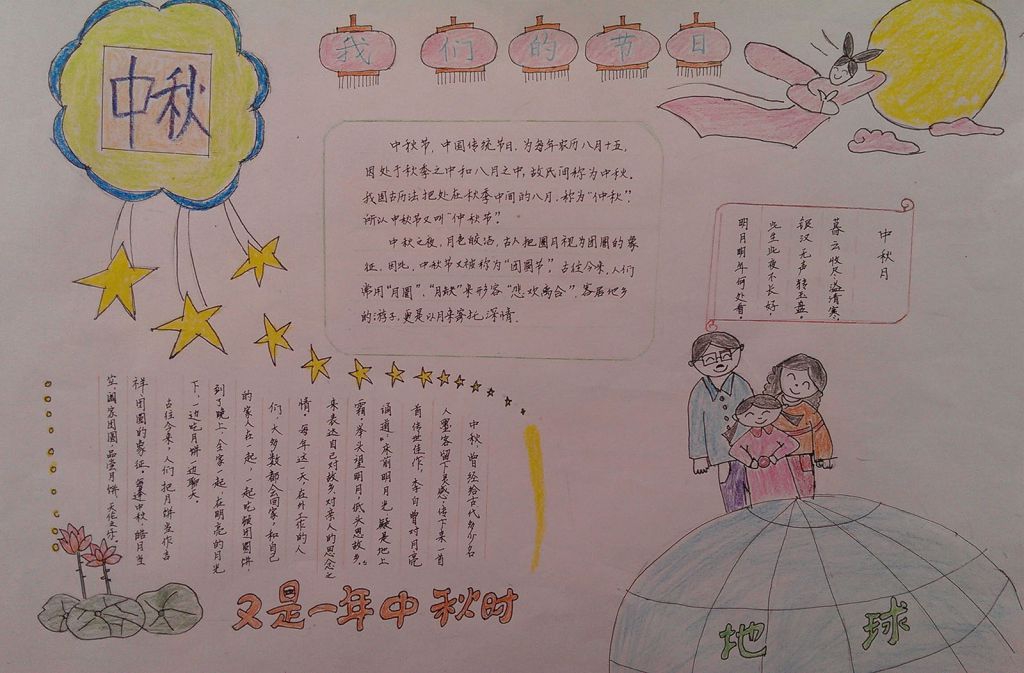 中秋
我们的节日
中秋节，中国传统节日，为每年农历八月十五，
因处于秋季之中和八月之中，故民间称为中秋。
我国古历法把处在秋季中间的八月，称为“仲秋”，
所以中秋节又叫“仲秋节”。
中秋之夜，月色皎洁，古人把圆月视为团圆的象
征，因此，中秋节又被称为“团圆节”。古往今来，人们
常用“月圆”、“月缺”来形容“悲欢离合”，客居他乡
的游子，更是以月来寄托深情。
中秋月
暮云收尽溢清寒，
银汉无声转玉盘。
此生此夜不长好，
明月明年何处看。
中秋，曾经给古代多少名
人墨客留下灵感，传下来一首
首传世佳作，李白曾对月亮
诵道：“床前明月光，疑是地上
霜，举头望明月，低头思故乡。”
来表达自己对故乡、对亲人的思念之
情。每年这一天，在外工作的人
们，大多数都会回家，和自己
的家人在一起，一起吃顿团圆饼，
到了晚上，全家一起，在明亮的月光
下，一边吃月饼，一边聊天。
古往今来，人们把月饼当作吉
祥、团圆的象征。每逢中秋，皓月当
空，阖家团圆，品尝月饼，
又是一年中秋时
地球